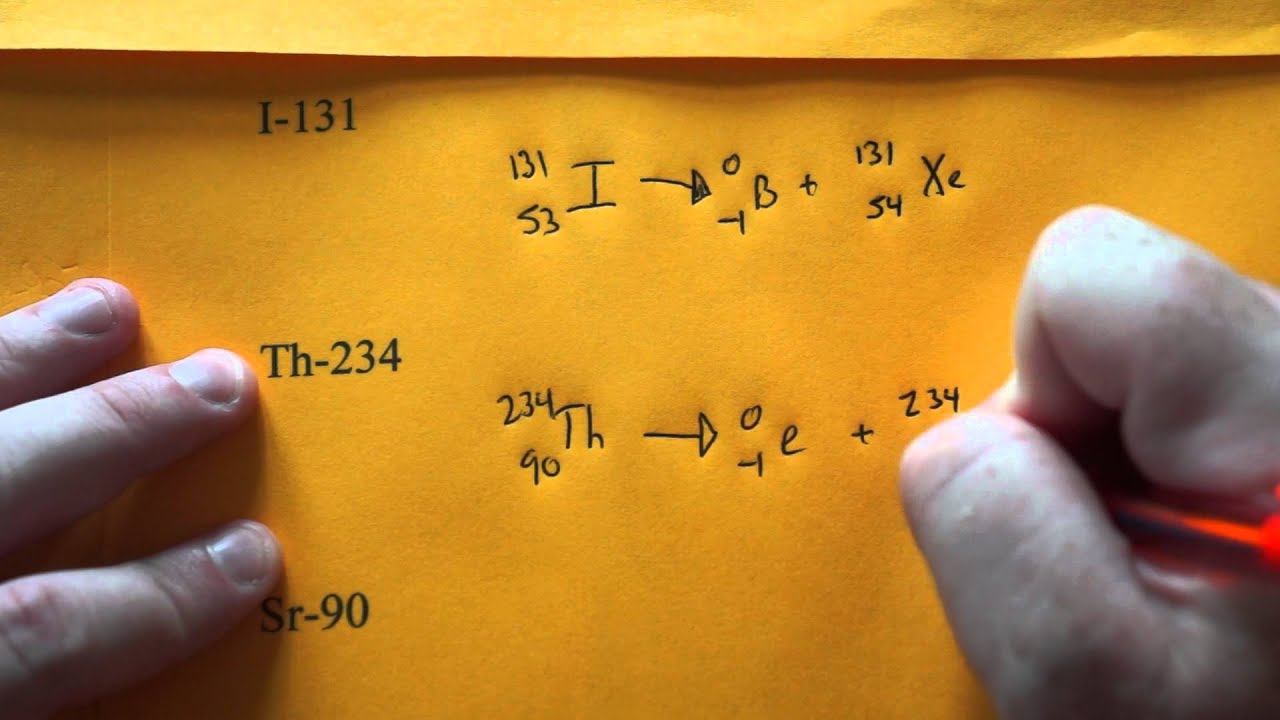 I-131
¹³¹₅₃I → ⁰₋₁B + ¹³¹₅₄Xe
Th-234
²³⁴₉₀Th → ⁰₋₁e + ²³⁴
Sr-90